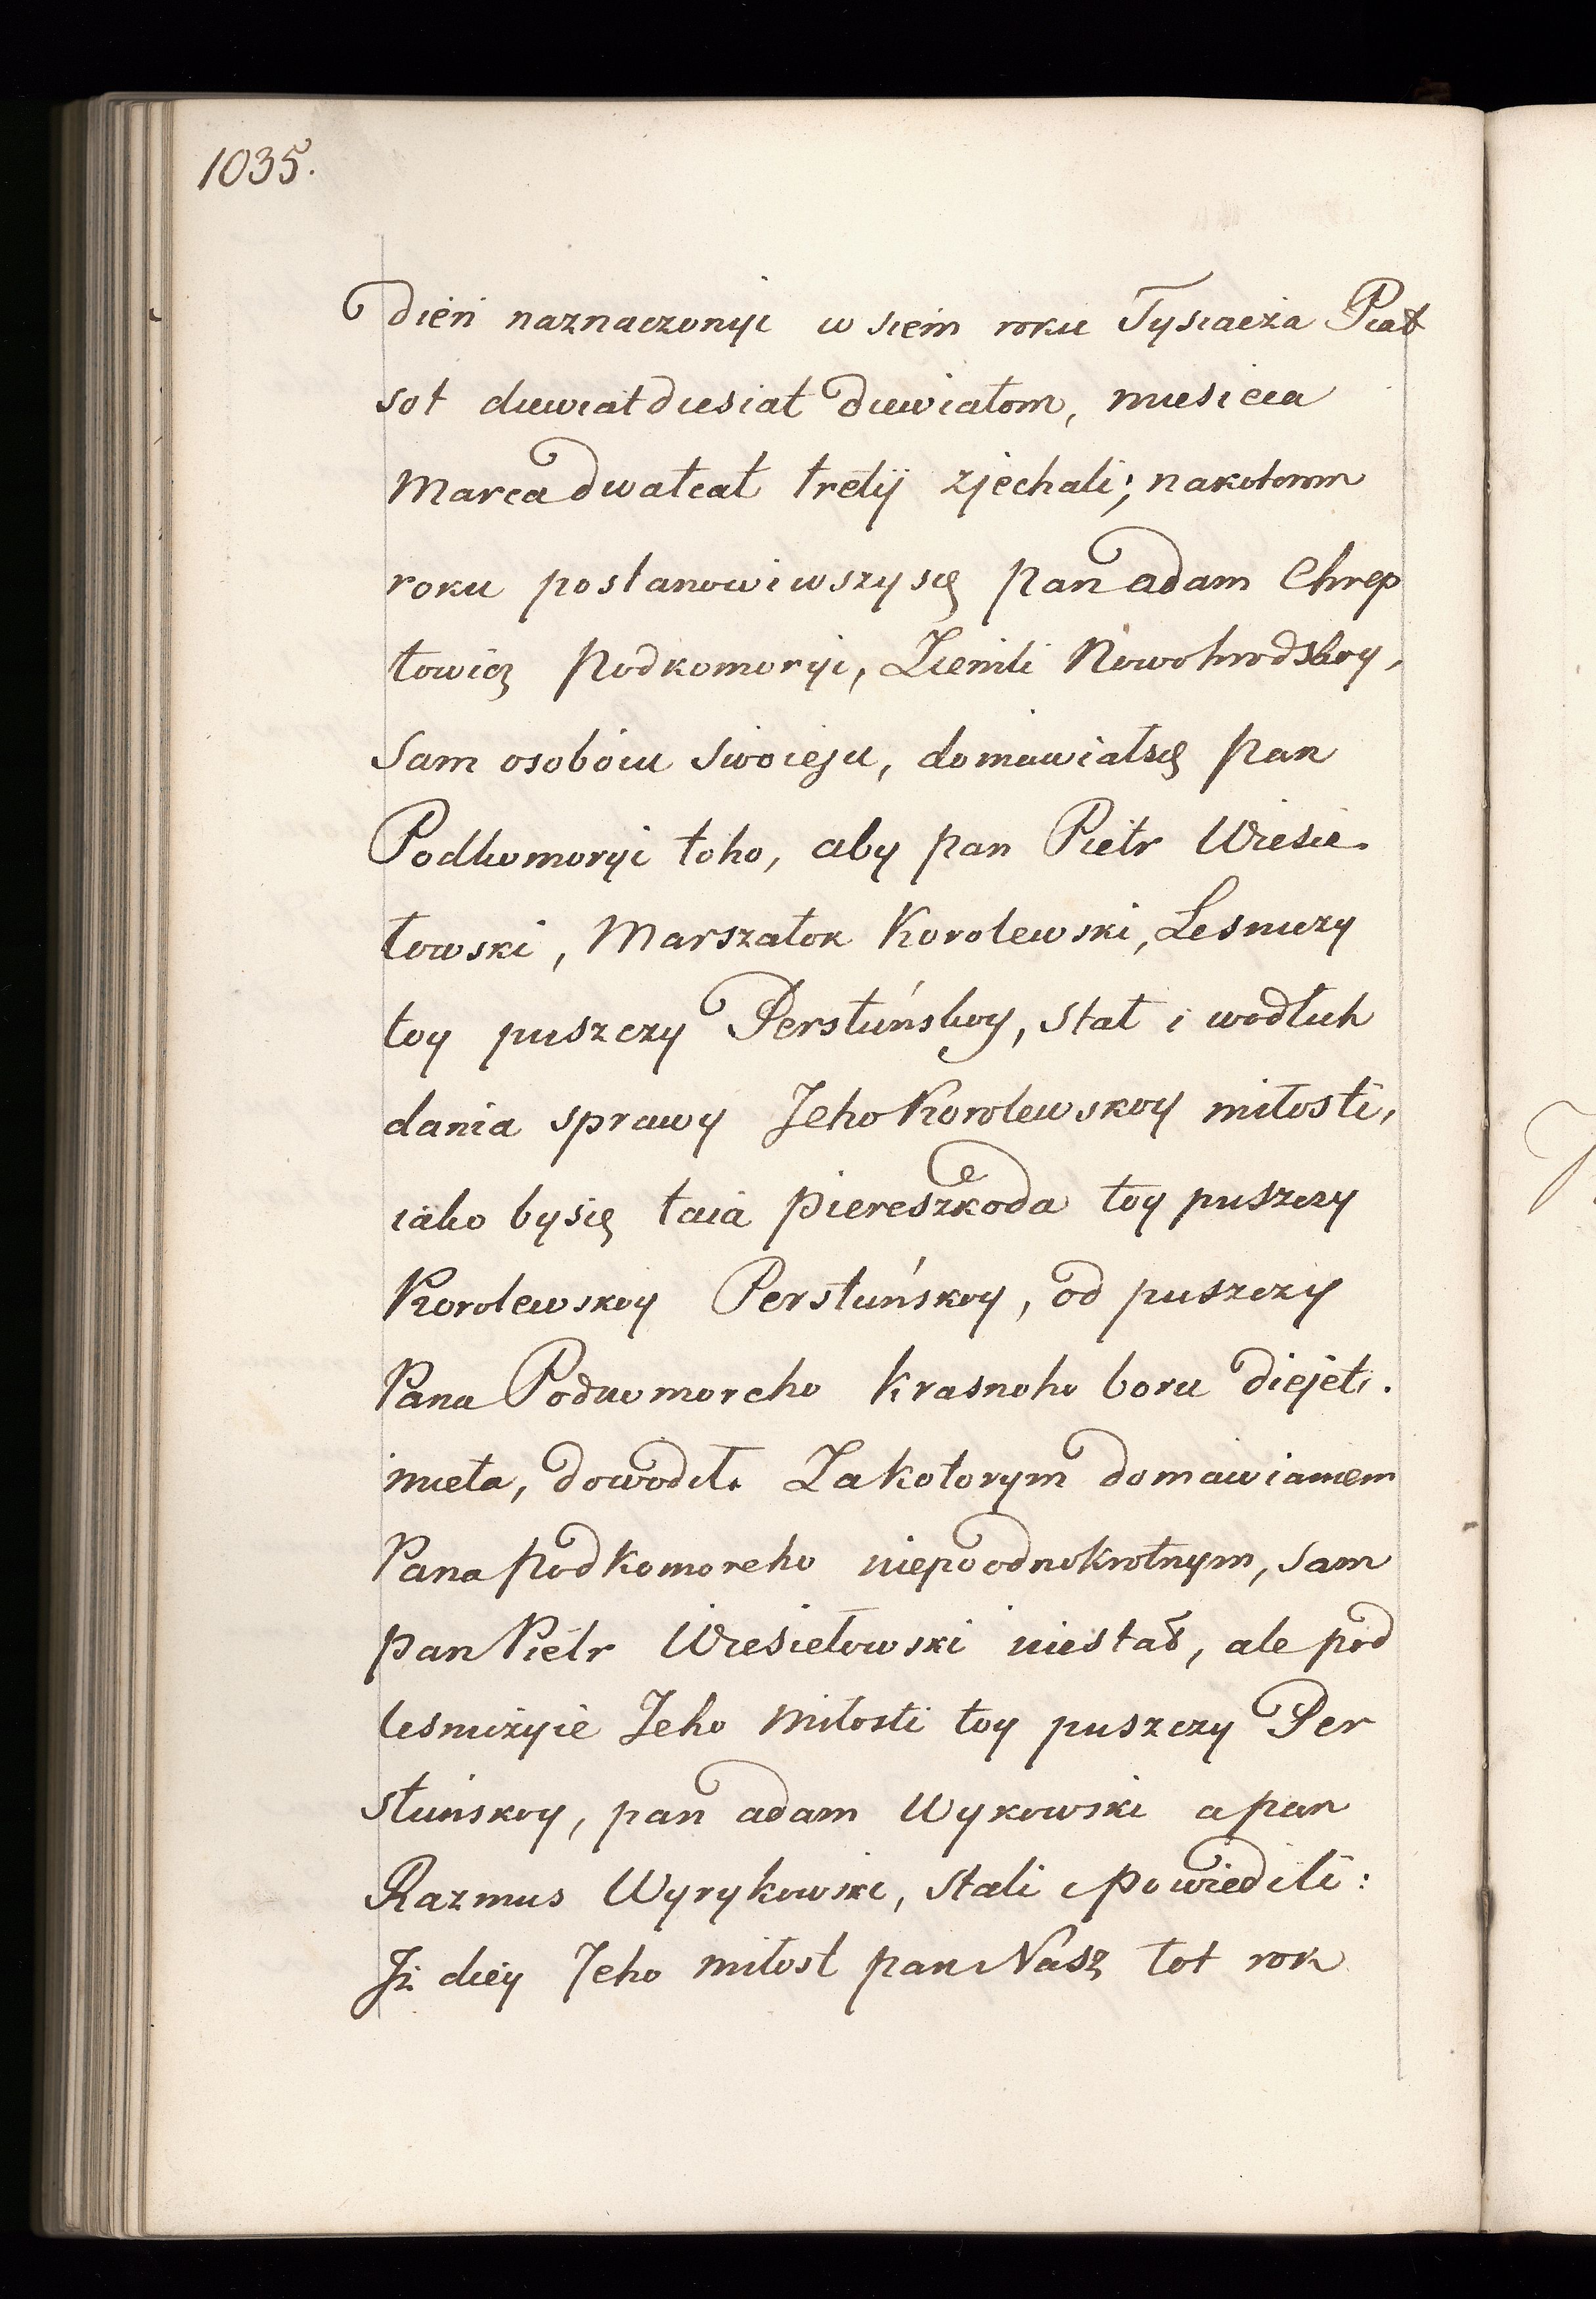 1035.
dień naznaczonyi w siem roku Tysiacza Piat
sot diewiatdiesiat diewiatom, miesieca
Marca dwatcat tretij zjechali; nakotorom
roku postanowiwszysię pan adam Chrep
towicz Podkomoryi, Ziemli Nowohrodskoy,
Sam osoboiu swoieju, domawiałsię pan
Podkomoryi toho, aby pan Pietr Wiesie.
łowski, Marszałok Korolewski, Lesniczy
toy puszczy Perstuńskoy, stał i wodłuh
dania sprawy Jeho Korolewskoy miłosti,
iako bysię taia piereszkoda toy puszczy
Korolewskoy Perstuńskoy, od puszczy
Pana Podkomoreho Krasnoho boru diejeti.
mieła, dowodił. Za kotorym domawianiem
Pana Podkomoreho niepoodnokrotnym, sam
pan Pietr Wiesiełowski niestał, ale pod
lesniczyie Jeho Miłosti toy puszczy Per
stuńskoy, pan adam Wykowski a pan
Razmus Wyrykowski, stali i powiedili:
Iż diey Jeho miłost pan Nasz tot rok